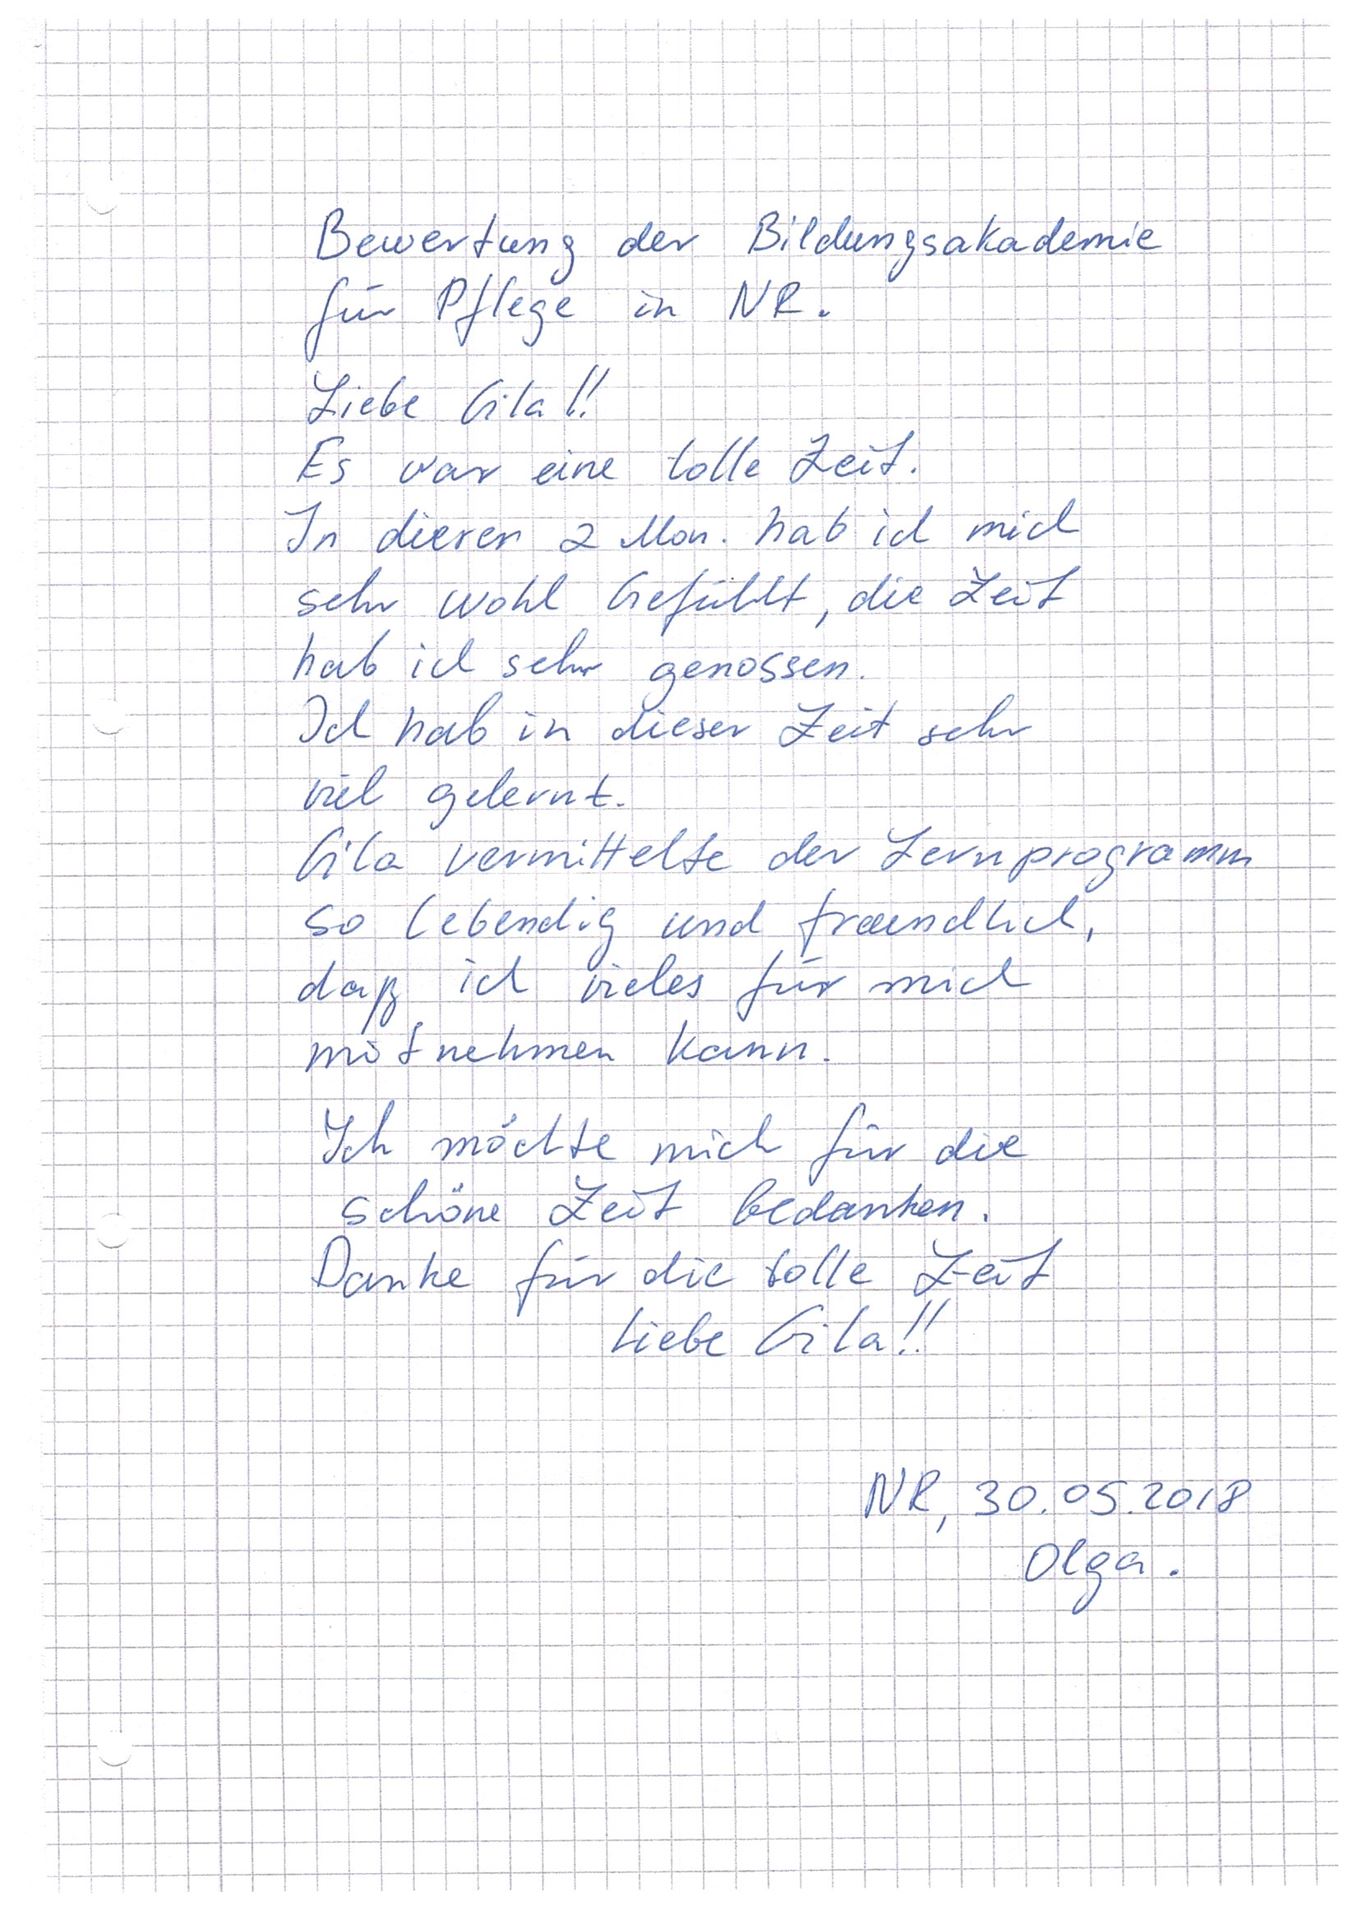 Bewertung der Bildungsakademie
für Pflege in NR.
Liebe Gila!!
Es war eine tolle Zeit.
In diesen 2 Mon. hab ich mich
sehr wohl Gefühlt, die Zeit
hab ich sehr genossen.
Ich hab in dieser Zeit sehr
viel gelernt.
Gila vermittelte der Lernprogramm
so lebendig und fraendlich,
daß ich vieles für mich
mitnehmen kann.
Ich möchte mich für die
schöne Zeit bedanken.
Danke für die tolle Zeit
Liebe Gila!!
NR, 30.05.2018
Olga.